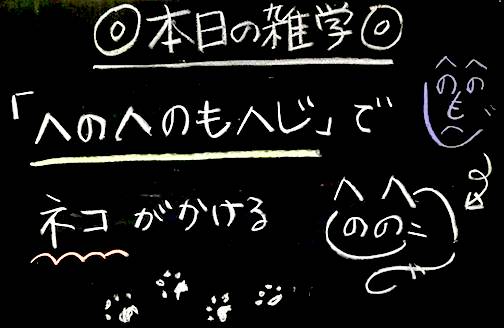 ◎本日の雑学◎
「へのへのもへじ」で
ネコがかける
へへ
のの
も
へ
じ
へへ
のの